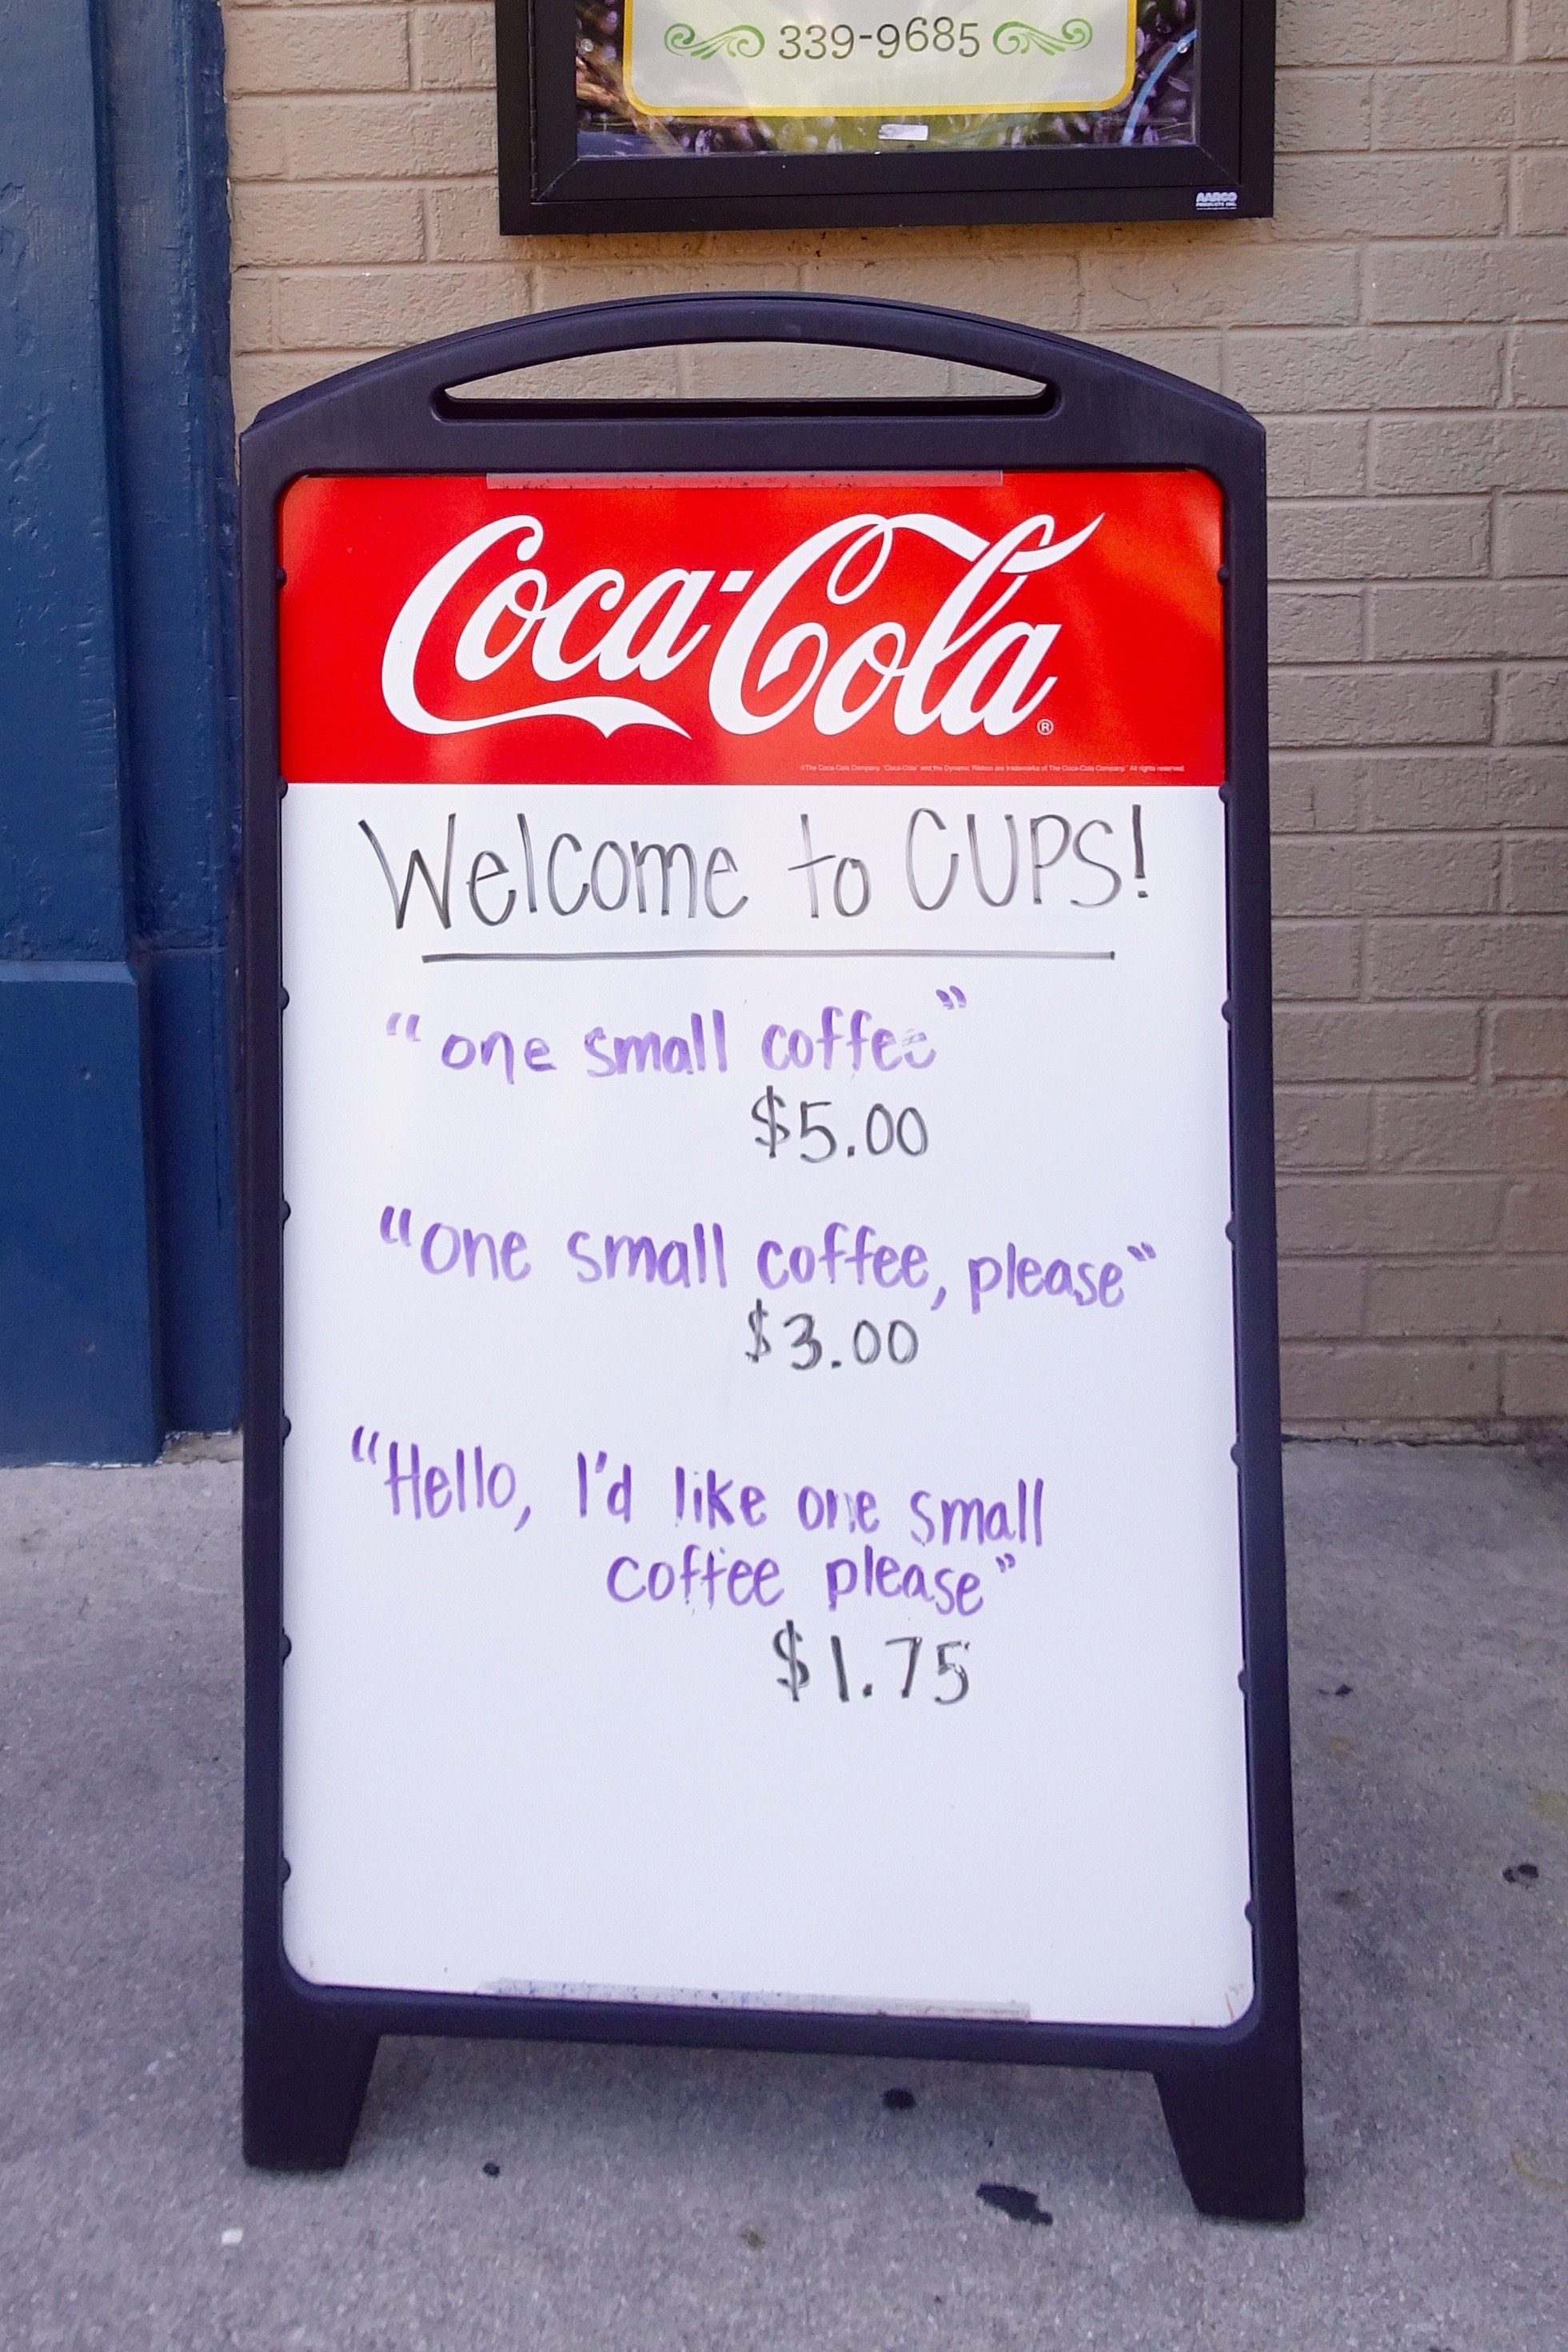 339-9685
AARCO
PRODUCTS INC.
Coca-Cola®
©The Coca-Cola Company. "Coca-Cola" and the Dynamic Ribbon are trademarks of The Coca-Cola Company. All rights reserved.
Welcome to CUPS!
"one small coffee"
$5.00
"One small coffee, please"
$3.00
"Hello, I'd like one small
coffee please"
$1.75